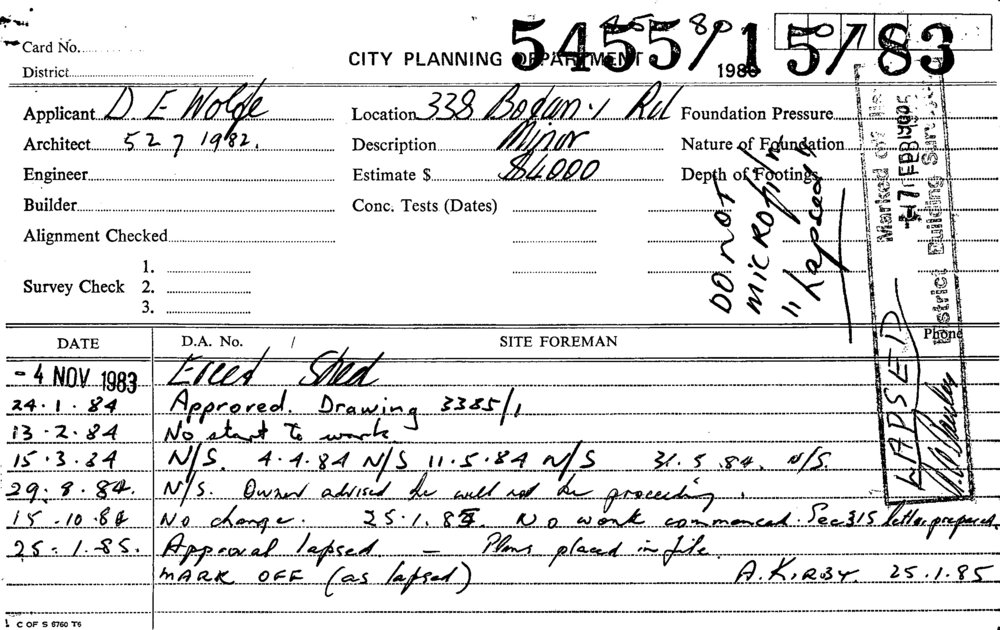 Card No. 45 80 50
CITY PLANNING DEPARTMENT 5455/15/83
District
198
Applicant D E Wolfe Location 338 Botany Rd Foundation Pressure
Architect 527 1982. Description Minor Nature of Foundation
Engineer Estimate $ $4000 Depth of Footings
Builder Conc. Tests (Dates)
Alignment Checked
Survey Check 1. 2. 3.
DO NOT
MICROFILM
"Lapsed"
Marked off
17 FEB 1985
District Building
LAPSED
Phone
DATE D.A. No. / SITE FOREMAN
- 4 NOV 1983 Erect Shed
24.1.84 Approved. Drawing 3385/1
13.2.84 No start to work
15.3.84 N/S. 4.4.84 N/S 11.5.84 N/S 31.5.84. N/S.
29.8.84. N/S. Owner advised he will not be proceeding.
15.10.84 No change. 25.1.85. No work commenced. Sec 315 letter prepared.
25.1.85. Approval lapsed. — Plans placed in file.
MARK OFF (as lapsed) A. KIRBY. 25.1.85
C OF S 6760 T6